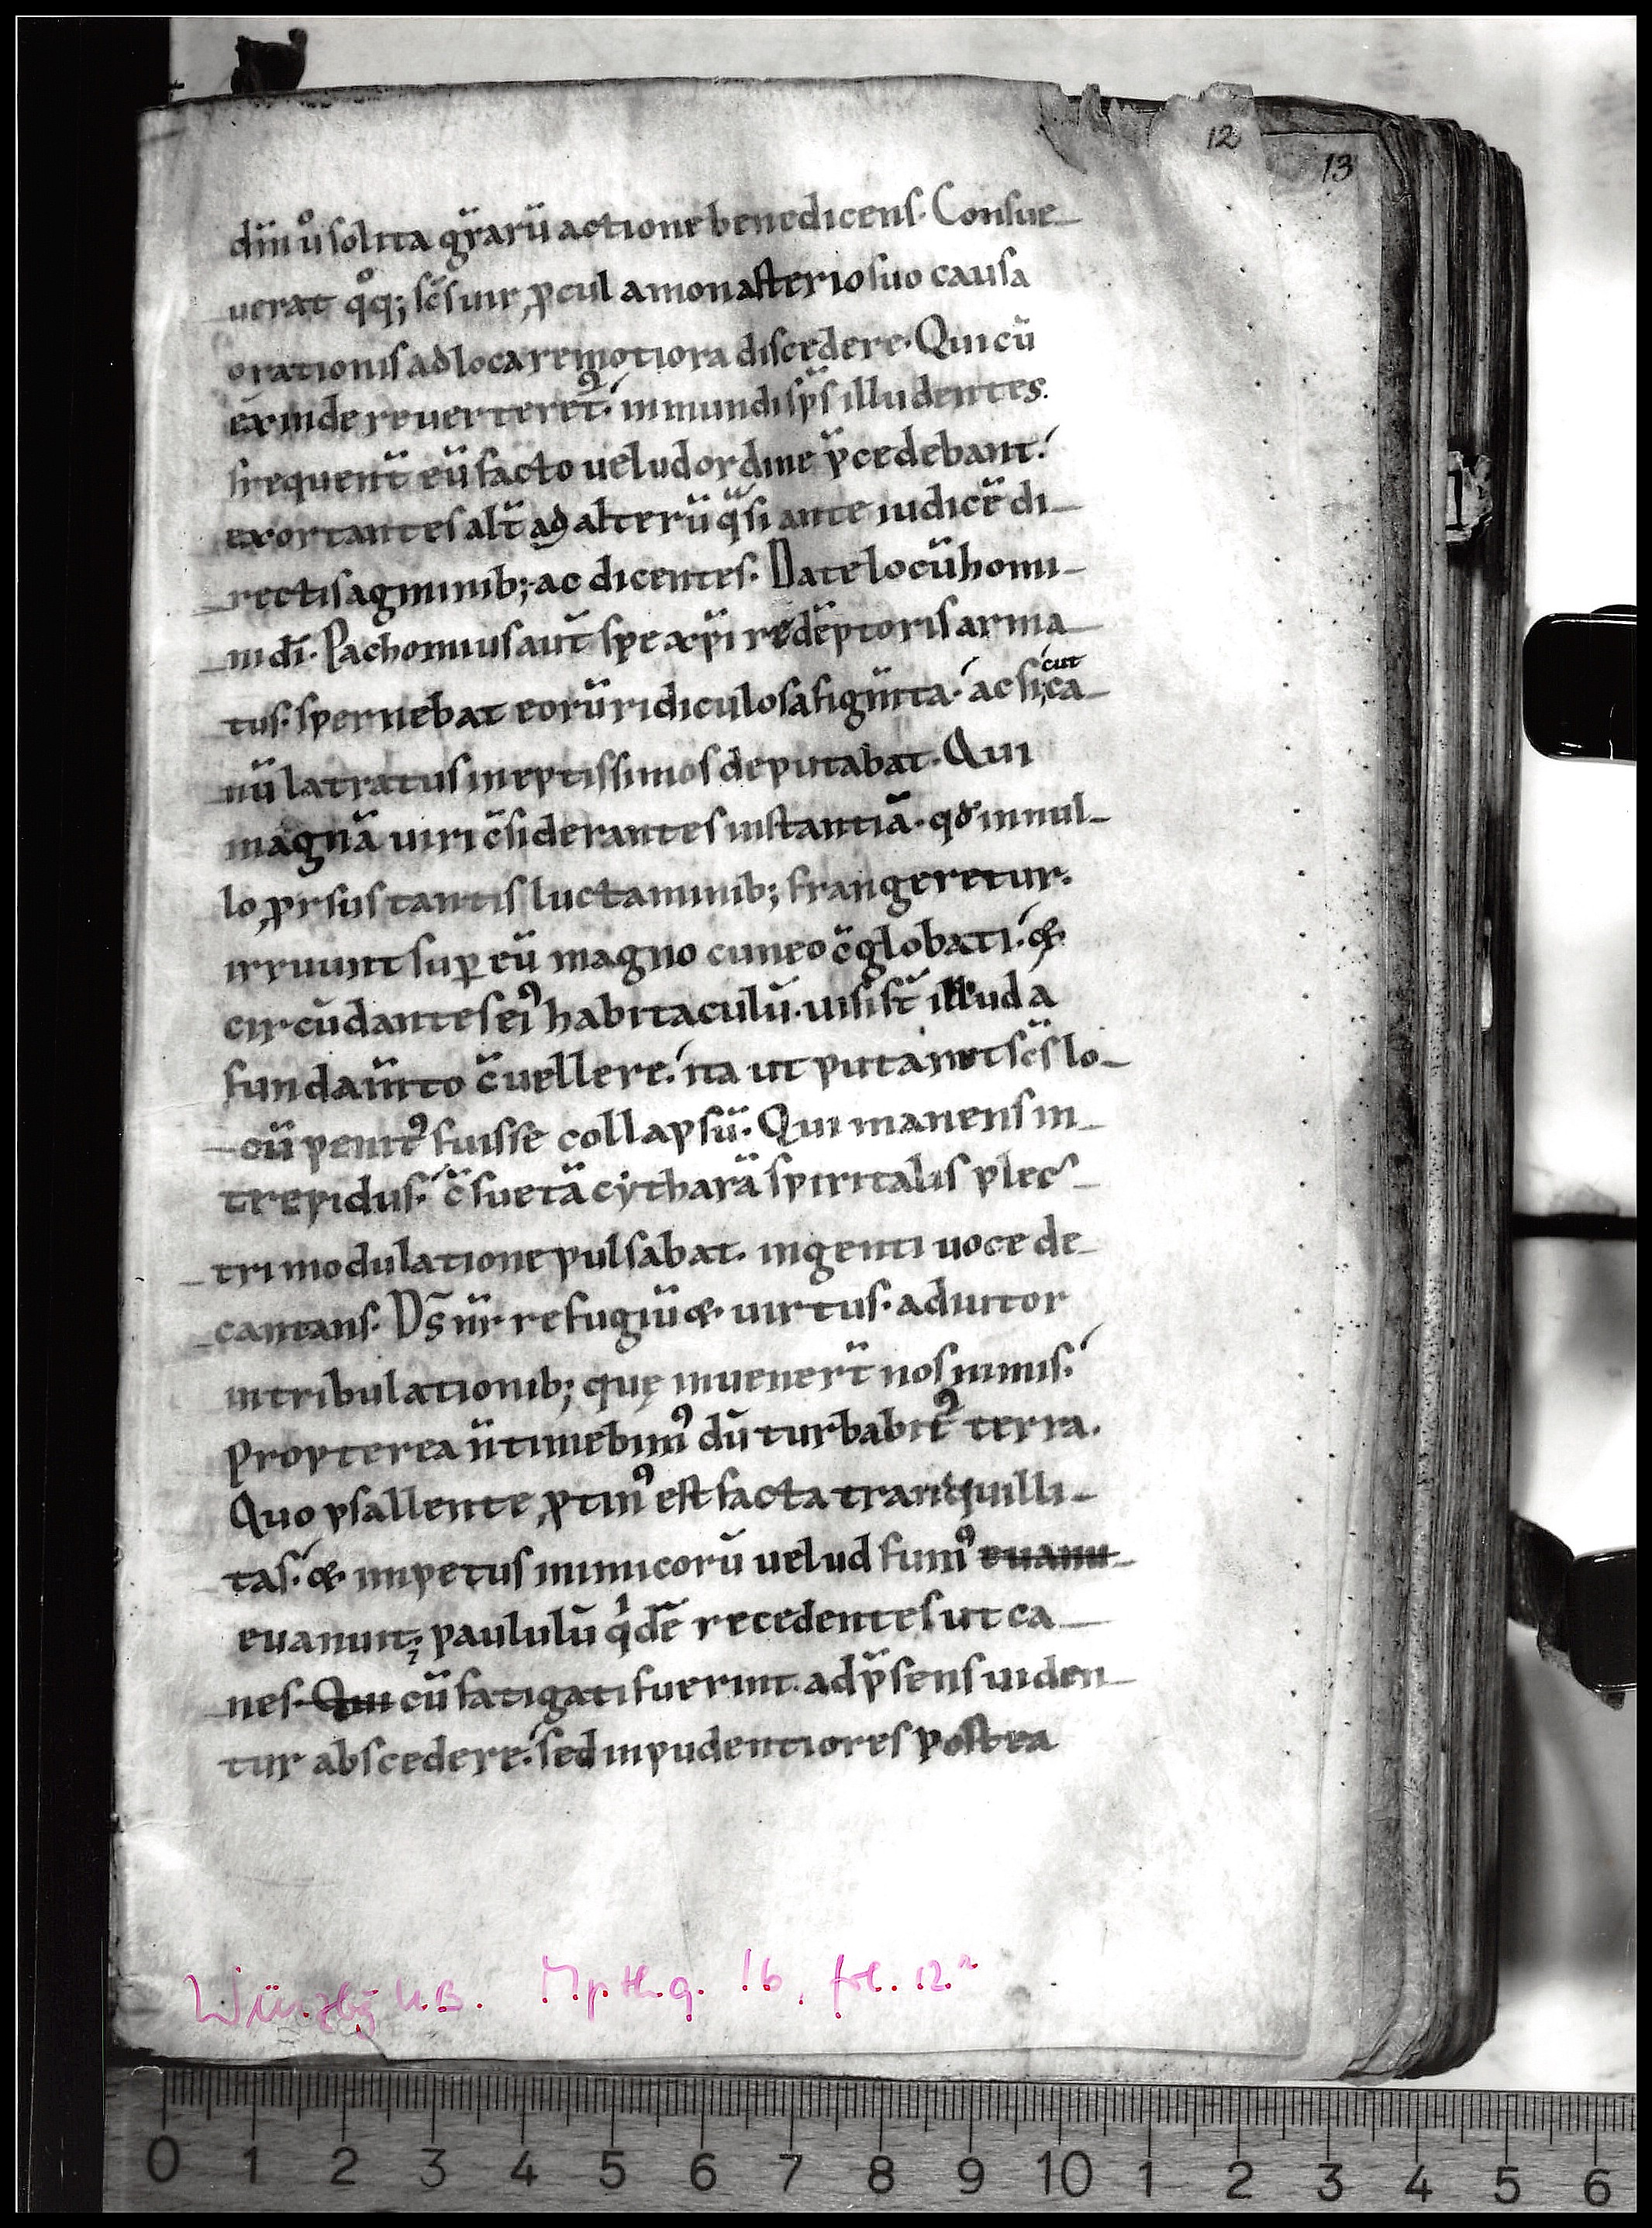 12
13
dñm ůo solita gr̈arū actione benedicens. Consue-
uerat qͦq; sc̄s uir ꝓcul a monasterio suo causa
orationis ad loca remotiora discedere. Qui cū
exinde reuerteret᷑. inmundi sp̄s illudentes.
frequent̄ eū facto uelud ordine p̄cedebant.
exortantes alt̄ ad alterū qͣsi ante iudicē di-
rectis agminib; ac dicentes. Date locū homi-
ni dī. Pachomius aut̄ spe xp̄i redēptoris arma-
tus. spernebat eorū ridiculosa figm̄ta. ac si cut ca-
nū latratus ineptissimos deputabat. Qui
magnā uiri c̄siderantes instantiā. qđ in nul-
lo ꝓrsus tantis luctaminib; frangeretur.
irruunt suꝑ eū magno cuneo c̄globati. &
circūdantes eiꝰ habitaculū. uisi st̄ illud a
fundam̄to c̄uellere. ita ut putaret sc̄s lo-
cū penitꝰ fuisse collapsū. Qui manens in-
trepidus. c̄suetā cẏtharā spiritalis plec-
tri modulatione pulsabat. ingenti uoce de-
cantans. Ds̄ nr̄ refugiū & uirtus. adiutor
in tribulationib; quę inuener̄t nos nimis.
Propterea n̄ timebimꝰ dū turbabit᷑ terra.
Quo psallente ꝓtinꝰ est facta tranquilli-
tas. & impetus inimicorū uelud fumꝰ euanu-
euanuit; paululū qͥdē recedentes ut ca-
nes. Qui cū fatigati fuerint. ad p̄sens uiden-
tur abscedere. sed inpudentiores postea
Würzbg U.B. Mp. th. q. 16, fol. 12.r
0 1 2 3 4 5 6 7 8 9 10 1 2 3 4 5 6